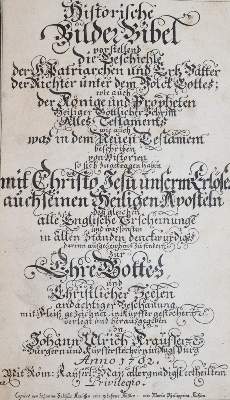 Historische
Bilder Bibel
vorstellend
die Geschichte
der H. Patriarchen und Ertz Vätter
der Richter unter dem Volck Gottes;
wie auch
der Könige und Propheten
Heiliger Göttlicher Schrifft
Altes Testaments
wie auch
was in dem Neuen Testament
beschriben
von Historien
so sich zugetragen haben
mit Christo Jesu unserm Erlöser
auch seinen Heiligen Aposteln
desgleichen
alle Englische Erscheinunge
und was sonsten
in allen Ständen denckwürdiges
darinn aufgezeichnet zu finden
zur
Ehre Gottes
und
Christlicher Seelen
andächtiger Beschauung
mit Fleiß gezeichnet, in Kupffer gestochen
verlegt und herausgegeben
von
Johann Ulrich Kraussen
Burgern und Kupfferstechern in Augspurg
Anno 1702.
Mit Röm: Kayserl: May: allergnädigst ertheilten
Privilegio.